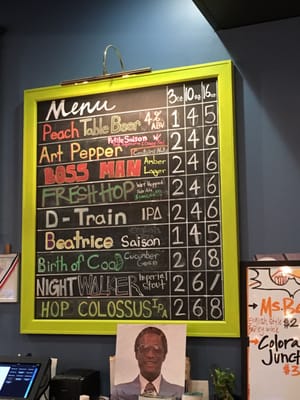 Menu
3oz 10oz 16oz
Peach Table Beer 4% ABV 1 4 5
Petite Saison
Art Pepper 2 4 6
BOSS MAN Amber Lager 2 4 6
FRESH HOP Wet Hopped 2 4 6
D-Train IPA 2 4 6
Beatrice Saison 1 4 5
Birth of Coog Cucumber 2 6 8
NIGHT WALKER Imperial Stout 2 6 7
HOP COLOSSUS IPA 2 6 8
Ms. B
Colora
Junct
$3